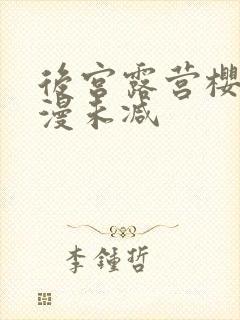 後宫露营樱
漫未减
李鍾哲